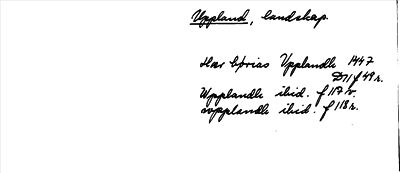 Uppland, landskap.
Här börias Upplandh 1447
D11 f 49 r.
Wpplandh ibid. f 117 v.
wpplandh ibid. f 118 r.